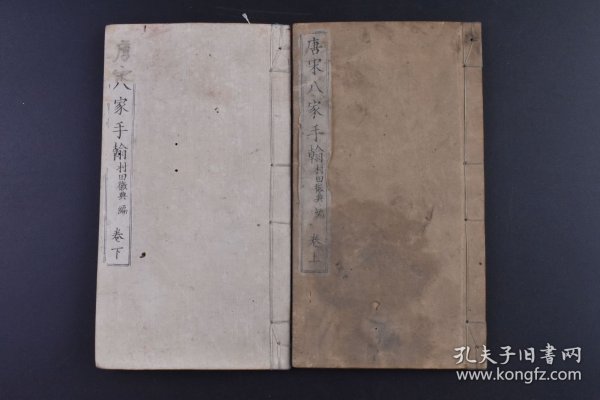 唐宋八家手翰
村田徽典 編
卷上
唐宋八家手翰
村田徽典 編
卷下
孔夫子旧书网
www.kongfz.com